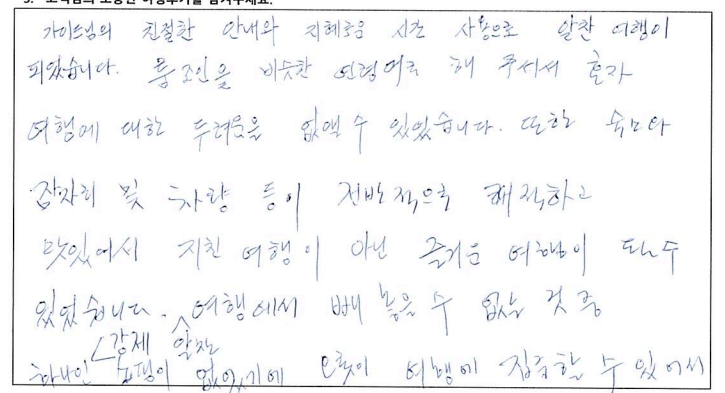 고객님의 소중한 여행후기를 남겨주세요.
가이드님의 친절한 안내와 지혜로운 시간 사용으로 알찬 여행이
되었습니다. 룸조인을 비슷한 연령여로 해 주셔서 혼자
여행에 대한 두려움을 없앨 수 있었습니다. 또한
잠자리 및 차량 등이 전반적으로 쾌적하고
맛있어서 지친 여행이 아닌 즐거운 여행이 될 수
있었습니다. 여행에서 빼 놓을 수 없는 것 중
강제 알찬
하나인 쇼핑이 없었기에 오롯이 여행에 집중할 수 있어서